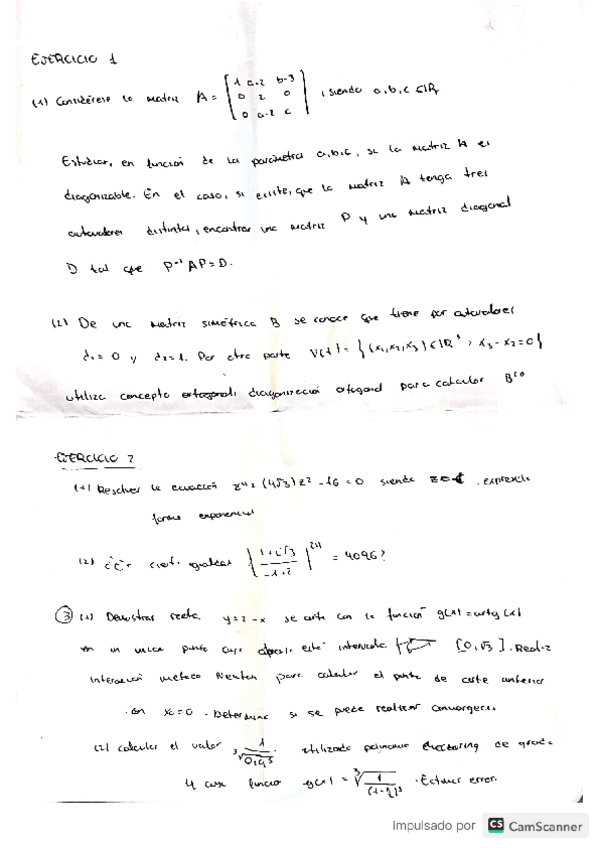 EJERCICIO 1
(1) Considérese la matriz A = [1 a-2 b-3
0 2 0
0 a-2 c] , siendo a,b,c ∈ IR
Estudiar, en función de los parámetros a,b,c, si la matriz A es
diagonizable. En el caso, si existe, que la matriz A tenga tres
autovalores distintos, encontrar una matriz P y una matriz diagonal
D tal que P⁻¹AP=D.
(2) De una matriz simétrica B se conoce que tiene por autovalores
λ₁ = 0 y λ₂ = 1. Por otra parte V(1) = {(x₁,x₂,x₃) ∈ IR³, x₃-x₂=0}
utiliza concepto diagonización ortogonal para calcular B¹⁰
EJERCICIO 2
(1) Resolver la ecuación z⁴ (4√3) z² - 16 = 0 siendo z ∈ ℂ . expresela
forma exponencial
(2) ¿Es cierto igualdad = 4096?
③ (1) Demostrar recta y=2-x se corta con la función g(x)=arctg(x)
en un unico punto cuya está intervalo [0,√3]. Realiza
método Newton para calcular el punto de corte anterior
en x₀=0 . Determine si se puede realizar convergencia.
(2) calcular el valor utilizando polinomio de grado
4 función g(x) = . Estimar error.
Impulsado por CS CamScanner